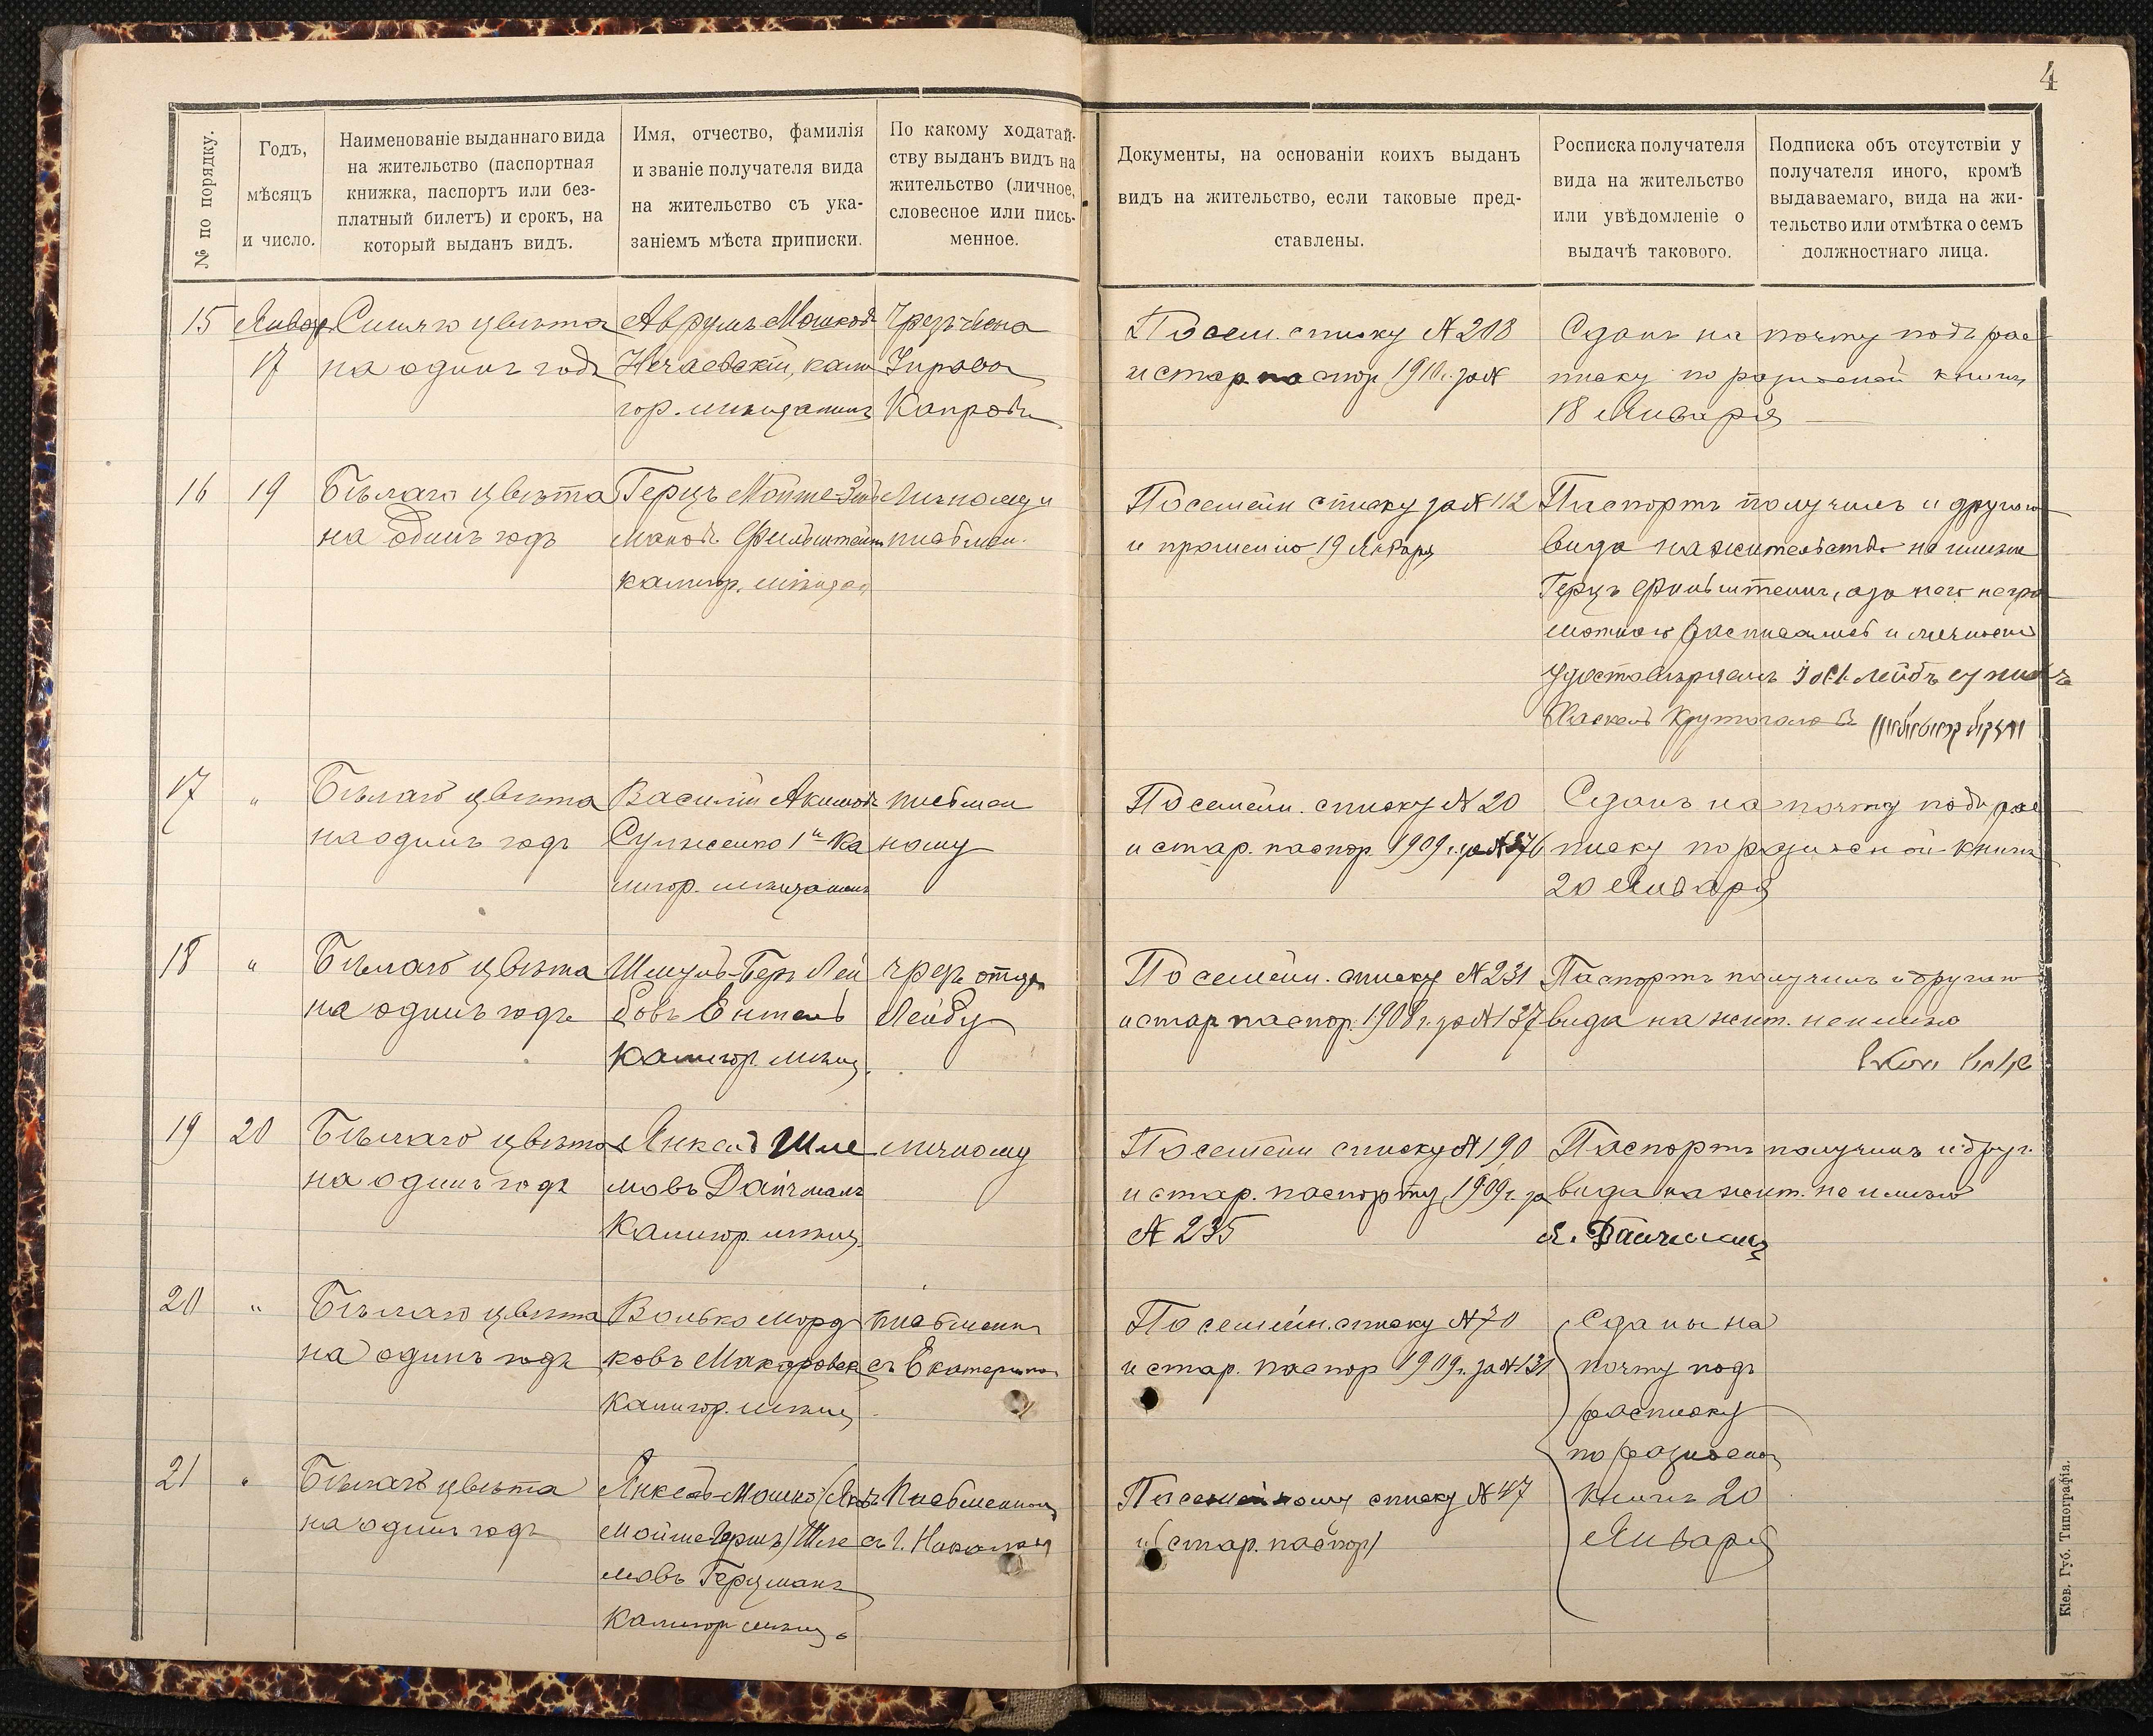 4
№ по порядку.
Годъ,
мѣсяцъ
и число.
Наименованіе выданнаго вида
на жительство (паспортная
книжка, паспортъ или без-
платный билетъ) и срокъ, на
который выданъ видъ.
Имя, отчество, фамилія
и званіе получателя вида
на жительство съ ука-
заніемъ мѣста приписки.
По какому ходатай-
ству выданъ видъ на
жительство (личное,
словесное или пись-
менное.
Документы, на основаніи коихъ выданъ
видъ на жительство, если таковые пред-
ставлены.
Росписка получателя
вида на жительство
или увѣдомленіе о
выдачѣ такового.
Подписка объ отсутствіи у
получателя иного, кромѣ
выдаваемаго, вида на жи-
тельство или отмѣтка о семъ
должностнаго лица.
15
Январ
17
Синяго цвѣта
на одинъ годъ
Аврумъ Мошков
Нечаевскій, калн
гор. мѣщанинъ
Чрезъ члена
Управы
По сем. списку № 208
и стар. паспор 1910 г. за №
Сданъ на почту подъ рас
писку по разносной книгѣ
18 Января
16
19
Бѣлаго цвѣта
на одинъ годъ
Герцъ Мойше-Зел
мановъ Фильштейнъ
калигор. мѣщан
Личному и
письмен.
По семейн списку за № 112
и прошенію 19 Января
Паспортъ получилъ и другого
вида на жительство не имѣю
Герцъ Фильштейнъ, а за него негра
мотнаго расписались и личность
удостовѣряемъ
17
"
Бѣлаго цвѣта
на одинъ годъ
Василій Акимовъ
Сулженко 1й ка
лигор. мѣщанинъ
письмен
ному
По семейн. списку № 20
и стар. паспор. 1909 г. за № 376
Сданъ на почту подъ рас
писку по разносной книгѣ
20 Января
18
"
Бѣлаго цвѣта
на одинъ годъ
Шмуль-Беръ Лей
бовъ Ентель
калигор. мѣщ.
чрезъ отца
Лейбу
По семейн. списку № 231
и стар паспор. 1908 г. за № 137
Паспортъ получилъ и другого
вида на жит. не имѣю
19
20
Бѣлаго цвѣта
на одинъ годъ
Янкель Шле
мовъ Дайчманъ
калигор. мѣщ.
личному
По семейн списку № 190
и стар. паспорту 1909 г. за
№ 235
Паспортъ получилъ и друг.
вида на жит. не имѣю
Я. Дайчманъ
20
"
Бѣлаго цвѣта
на одинъ годъ
Волько Морд
ковъ Макаровск
калигор. мѣщ
письменн
съ Екатерино
По семейн. списку № 70
и стар. паспор 1909 г. за № 131
Сданы на
почту подъ
расписку
по разносной
книгѣ 20
Января
21
"
Бѣлаго цвѣта
на одинъ годъ
Янкель-Мошко
Мойше-Гершъ) Шле
мовъ Герцманъ
калигор мѣщ.
Письменному
съ г. Николаев
По семейному списку № 47
и (стар. паспор)
Кіев. Губ. Типографія.